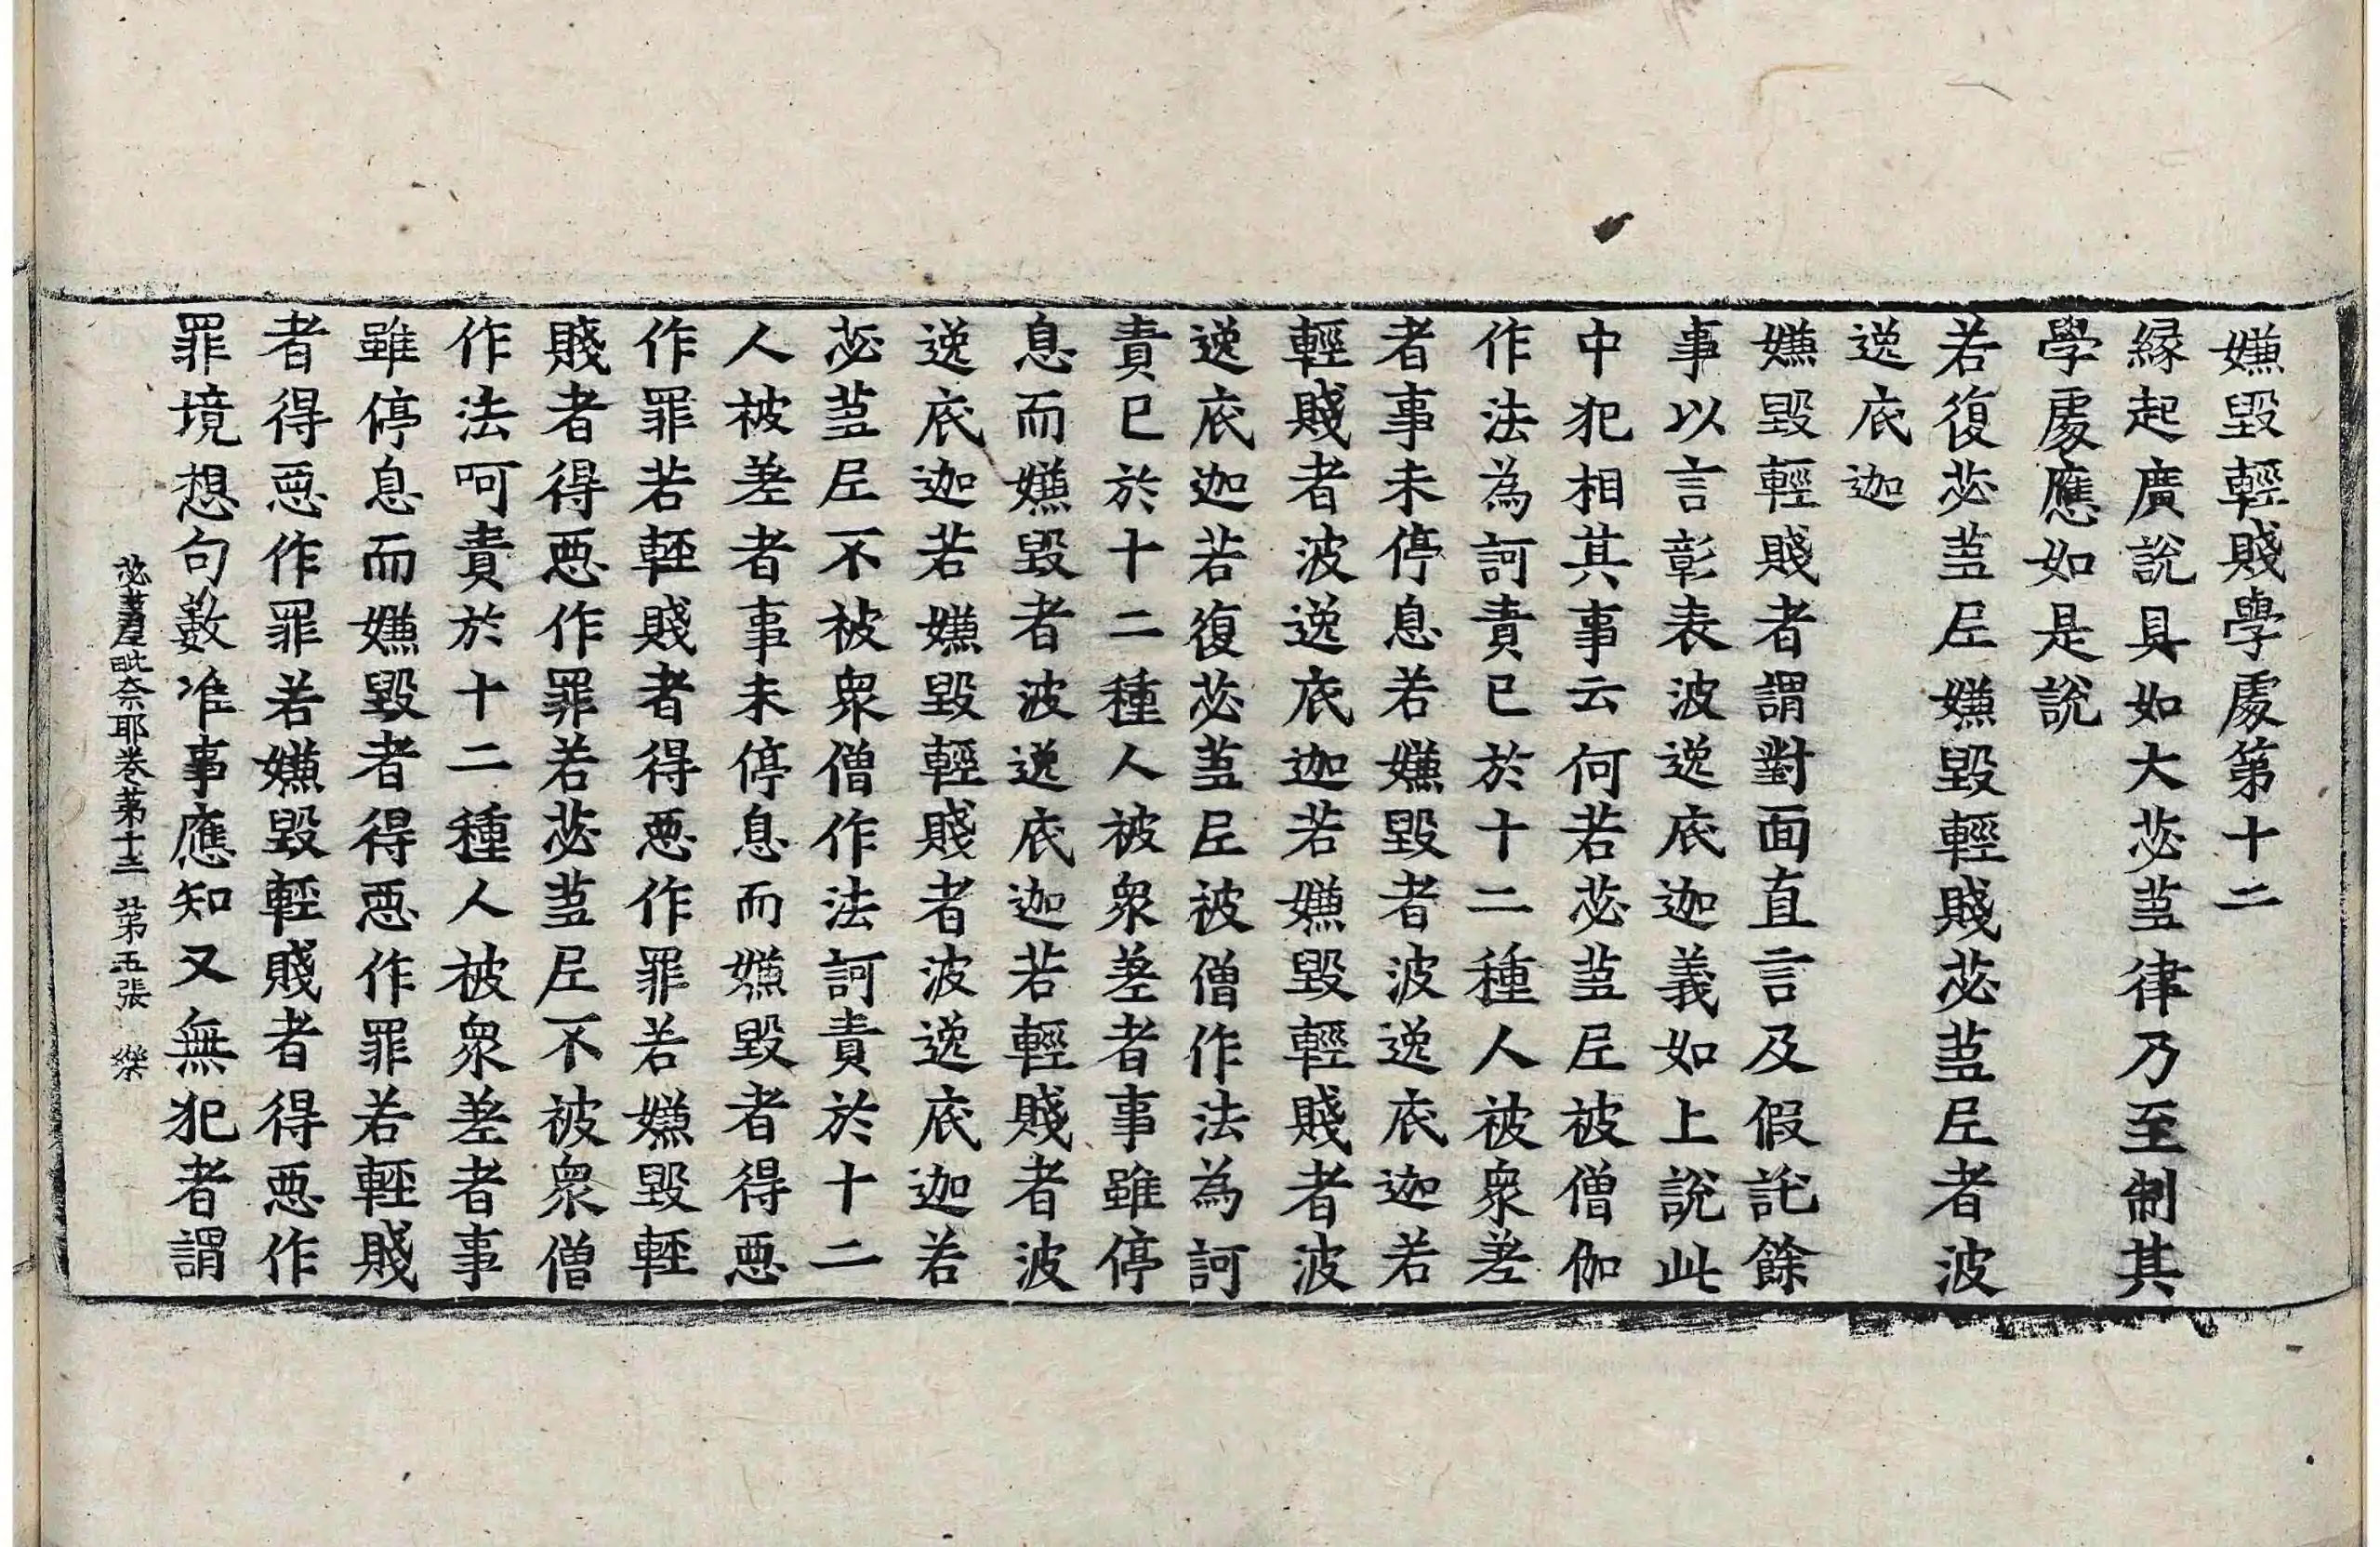 嫌毀輕賤學處第十二
緣起廣說具如大苾芻律乃至制其
學處應如是說
若復苾芻尼嫌毀輕賤苾芻尼者波
逸底迦
嫌毀輕賤者謂對面直言及假託餘
事以言彰表波逸底迦義如上說此
中犯相其事云何若苾芻尼被僧伽
作法為訶責已於十二種人被衆差
者事未停息若嫌毀者波逸底迦若
輕賤者波逸底迦若嫌毀輕賤者波
逸底迦若復苾芻尼被僧作法為訶
責已於十二種人被衆差者事雖停
息而嫌毀者波逸底迦若輕賤者波
逸底迦若嫌毀輕賤者波逸底迦若
苾芻尼不被衆僧作法訶責於十二
人被差者事未停息而嫌毀者得惡
作罪若輕賤者得惡作罪若嫌毀輕
賤者得惡作罪若苾芻尼不被衆僧
作法呵責於十二種人被衆差者事
雖停息而嫌毀者得惡作罪若輕賤
者得惡作罪若嫌毀輕賤者得惡作
罪境想句數准事應知又無犯者謂
苾芻尼毗奈耶卷第十三 第五張